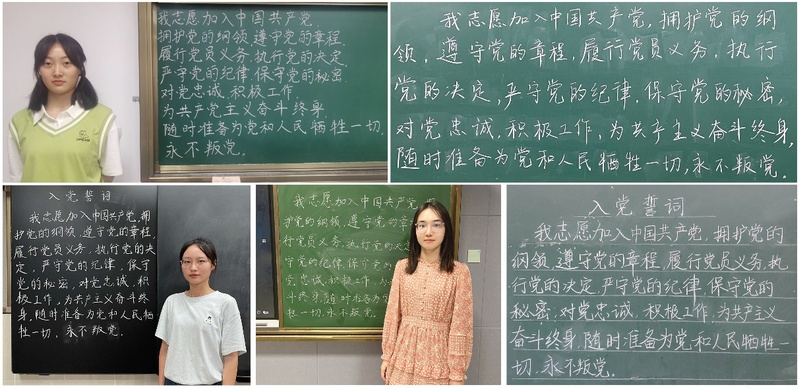 我志愿加入中国共产党,
拥护党的纲领,遵守党的章程,
履行党员义务,执行党的决定,
严守党的纪律,保守党的秘密,
对党忠诚,积极工作,
为共产党主义奋斗终身,
随时准备为党和人民牺牲一切,
永不叛党。
我志愿加入中国共产党,拥护党的纲
领,遵守党的章程,履行党员义务,执行
党的决定,严守党的纪律,保守党的秘密,
对党忠诚,积极工作,为共产主义奋斗终身,
随时准备为党和人民牺牲一切,永不叛党.
入党誓词
我志愿加入中国共产党,拥
护党的纲领,遵守党的章程
履行党员义务,执行党的决
定,严守党的纪律,保守
党的秘密,对党忠诚,积
极工作,为共产主义奋斗终
身,随时准备为党和人民牺
牲一切,永不叛党.
我志愿加入中国共产党,
护党的纲领,遵守党的章
行党员义务,执行党的决定
守党的纪律,保守
党忠诚,积极工作
斗终身,随时准备为
一切,永不叛党.
入党誓词
我志愿加入中国共产党,拥护党的
纲领,遵守党的章程,履行党员义务,执
行党的决定,严守党的纪律,保守党的
秘密,对党忠诚,积极工作,为共产主义
奋斗终身,随时准备为党和人民牺牲一
切,永不叛党.